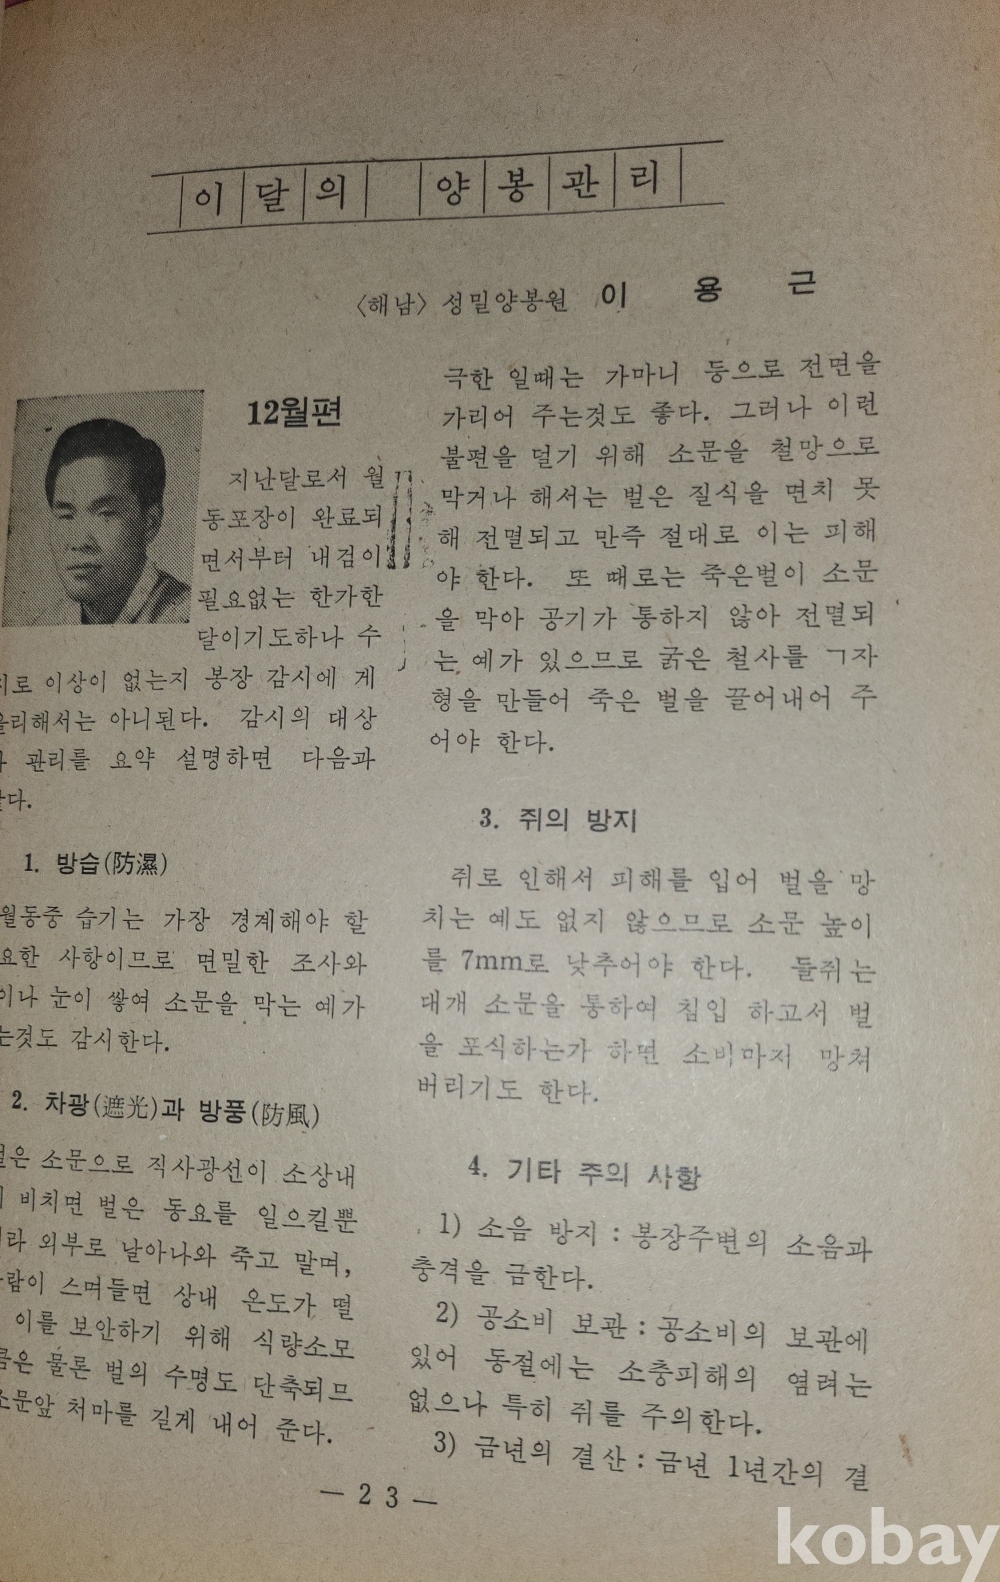 이달의 양봉관리
〈해남〉 성밀양봉원 이 용 근
12월편
지난달로서 월
동포장이 완료되
면서부터 내검이
필요없는 한가한
달이기도하나 수
시로 이상이 없는지 봉장 감시에 게
을리해서는 아니된다. 감시의 대상
관리를 요약 설명하면 다음과
같다.
1. 방습(防濕)
월동중 습기는 가장 경계해야 할
요한 사항이므로 면밀한 조사와
이나 눈이 쌓여 소문을 막는 예가
는것도 감시한다.
2. 차광(遮光)과 방풍(防風)
벌은 소문으로 직사광선이 소상내
비치면 벌은 동요를 일으킬뿐
라 외부로 날아나와 죽고 말며,
람이 스며들면 상내 온도가 떨
이를 보안하기 위해 식량소모
큼은 물론 벌의 수명도 단축되므
소문앞 처마를 길게 내어 준다.
극한 일때는 가마니 등으로 전면을
가리어 주는것도 좋다. 그러나 이런
불편을 덜기 위해 소문을 철망으로
막거나 해서는 벌은 질식을 면치 못
해 전멸되고 만즉 절대로 이는 피해
야 한다. 또 때로는 죽은벌이 소문
을 막아 공기가 통하지 않아 전멸되
는 예가 있으므로 굵은 철사를 ㄱ자
형을 만들어 죽은 벌을 끌어내어 주
어야 한다.
3. 쥐의 방지
쥐로 인해서 피해를 입어 벌을 망
치는 예도 없지 않으므로 소문 높이
를 7mm로 낮추어야 한다. 들쥐는
대개 소문을 통하여 침입 하고서 벌
을 포식하는가 하면 소비마저 망쳐
버리기도 한다.
4. 기타 주의 사항
1) 소음 방지 : 봉장주변의 소음과
충격을 금한다.
2) 공소비 보관 : 공소비의 보관에
있어 동절에는 소충피해의 염려는
없으나 특히 쥐를 주의한다.
3) 금년의 결산 : 금년 1년간의 결
— 2 3 —
kobay